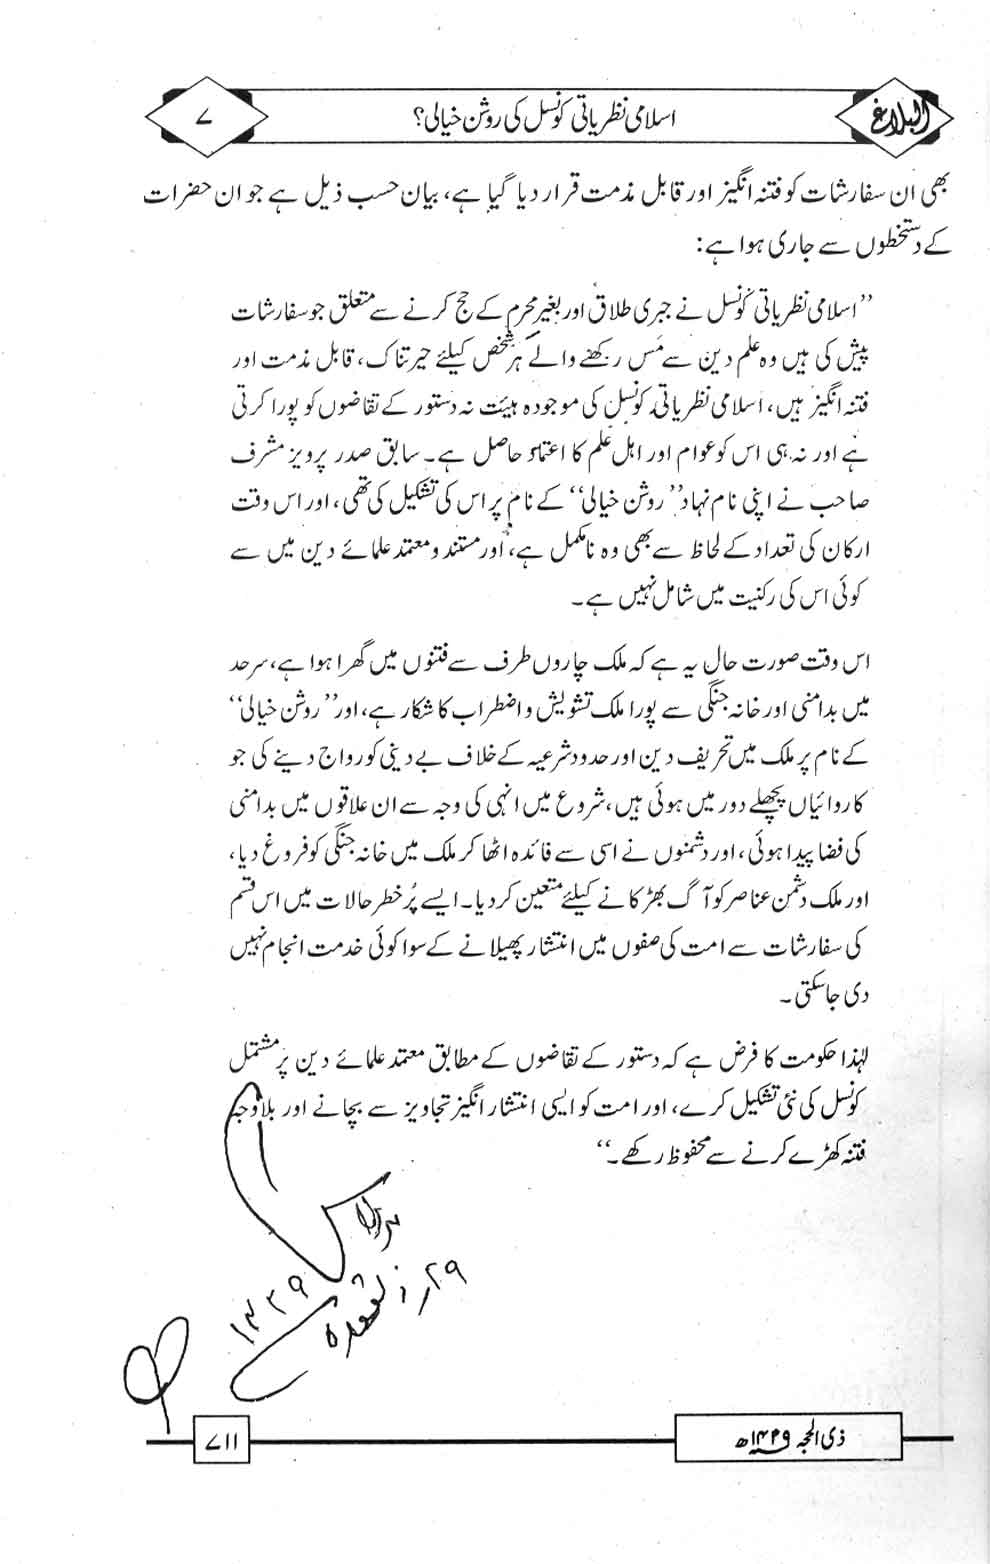 البلاغ
اسلامی نظریاتی کونسل کی روشن خیالی؟
۷
بھی ان سفارشات کو فتنہ انگیز اور قابل مذمت قرار دیا گیا ہے، بیان حسب ذیل ہے جو ان حضرات
کے دستخطوں سے جاری ہوا ہے:
’’اسلامی نظریاتی کونسل نے جبری طلاق اور بغیر محرم کے حج کرنے سے متعلق جو سفارشات
پیش کی ہیں وہ علم دین سے مَس رکھنے والے ہر شخص کیلئے حیرتناک، قابل مذمت اور
فتنہ انگیز ہیں، اسلامی نظریاتی کونسل کی موجودہ ہیئت نہ دستور کے تقاضوں کو پورا کرتی
ہے اور نہ ہی اس کو عوام اور اہل علم کا اعتماد حاصل ہے۔ سابق صدر پرویز مشرف
صاحب نے اپنی نام نہاد ’’روشن خیالی‘‘ کے نام پر اس کی تشکیل کی تھی، اور اس وقت
ارکان کی تعداد کے لحاظ سے بھی وہ نامکمل ہے، اور مستند و معتمد علمائے دین میں سے
کوئی اس کی رکنیت میں شامل نہیں ہے۔
اس وقت صورت حال یہ ہے کہ ملک چاروں طرف سے فتنوں میں گھرا ہوا ہے، سرحد
میں بدامنی اور خانہ جنگی سے پورا ملک تشویش و اضطراب کا شکار ہے، اور ’’روشن خیالی‘‘
کے نام پر ملک میں تحریف دین اور حدود شرعیہ کے خلاف بے دینی کو رواج دینے کی جو
کاروائیاں پچھلے دور میں ہوئی ہیں، شروع میں انہی کی وجہ سے ان علاقوں میں بدامنی
کی فضا پیدا ہوئی، اور دشمنوں نے اسی سے فائدہ اٹھا کر ملک میں خانہ جنگی کو فروغ دیا،
اور ملک دشمن عناصر کو آگ بھڑکانے کیلئے متعین کر دیا۔ ایسے پُر خطر حالات میں اس قسم
کی سفارشات سے امت کی صفوں میں انتشار پھیلانے کے سوا کوئی خدمت انجام نہیں
دی جاسکتی۔
لہٰذا حکومت کا فرض ہے کہ دستور کے تقاضوں کے مطابق معتمد علمائے دین پر مشتمل
کونسل کی نئی تشکیل کرے، اور امت کو ایسی انتشار انگیز تجاویز سے بچانے اور بلاوجہ
فتنہ کھڑے کرنے سے محفوظ رکھے۔‘‘
۲۹ر ذیقعدہ
۱۴۲۹
ذی الحجہ ۱۴۲۹ھ
۷۱۱